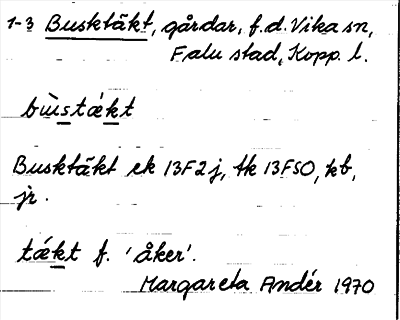 1-3 Busktäkt, gårdar, f.d. Vika sn,
Falu stad, Kopp. l.
bùstǽkt
Busktäkt ek 13F2j, tk 13FSO, kb,
jr.
tǽkt f. 'åker'.
Margareta Andér 1970